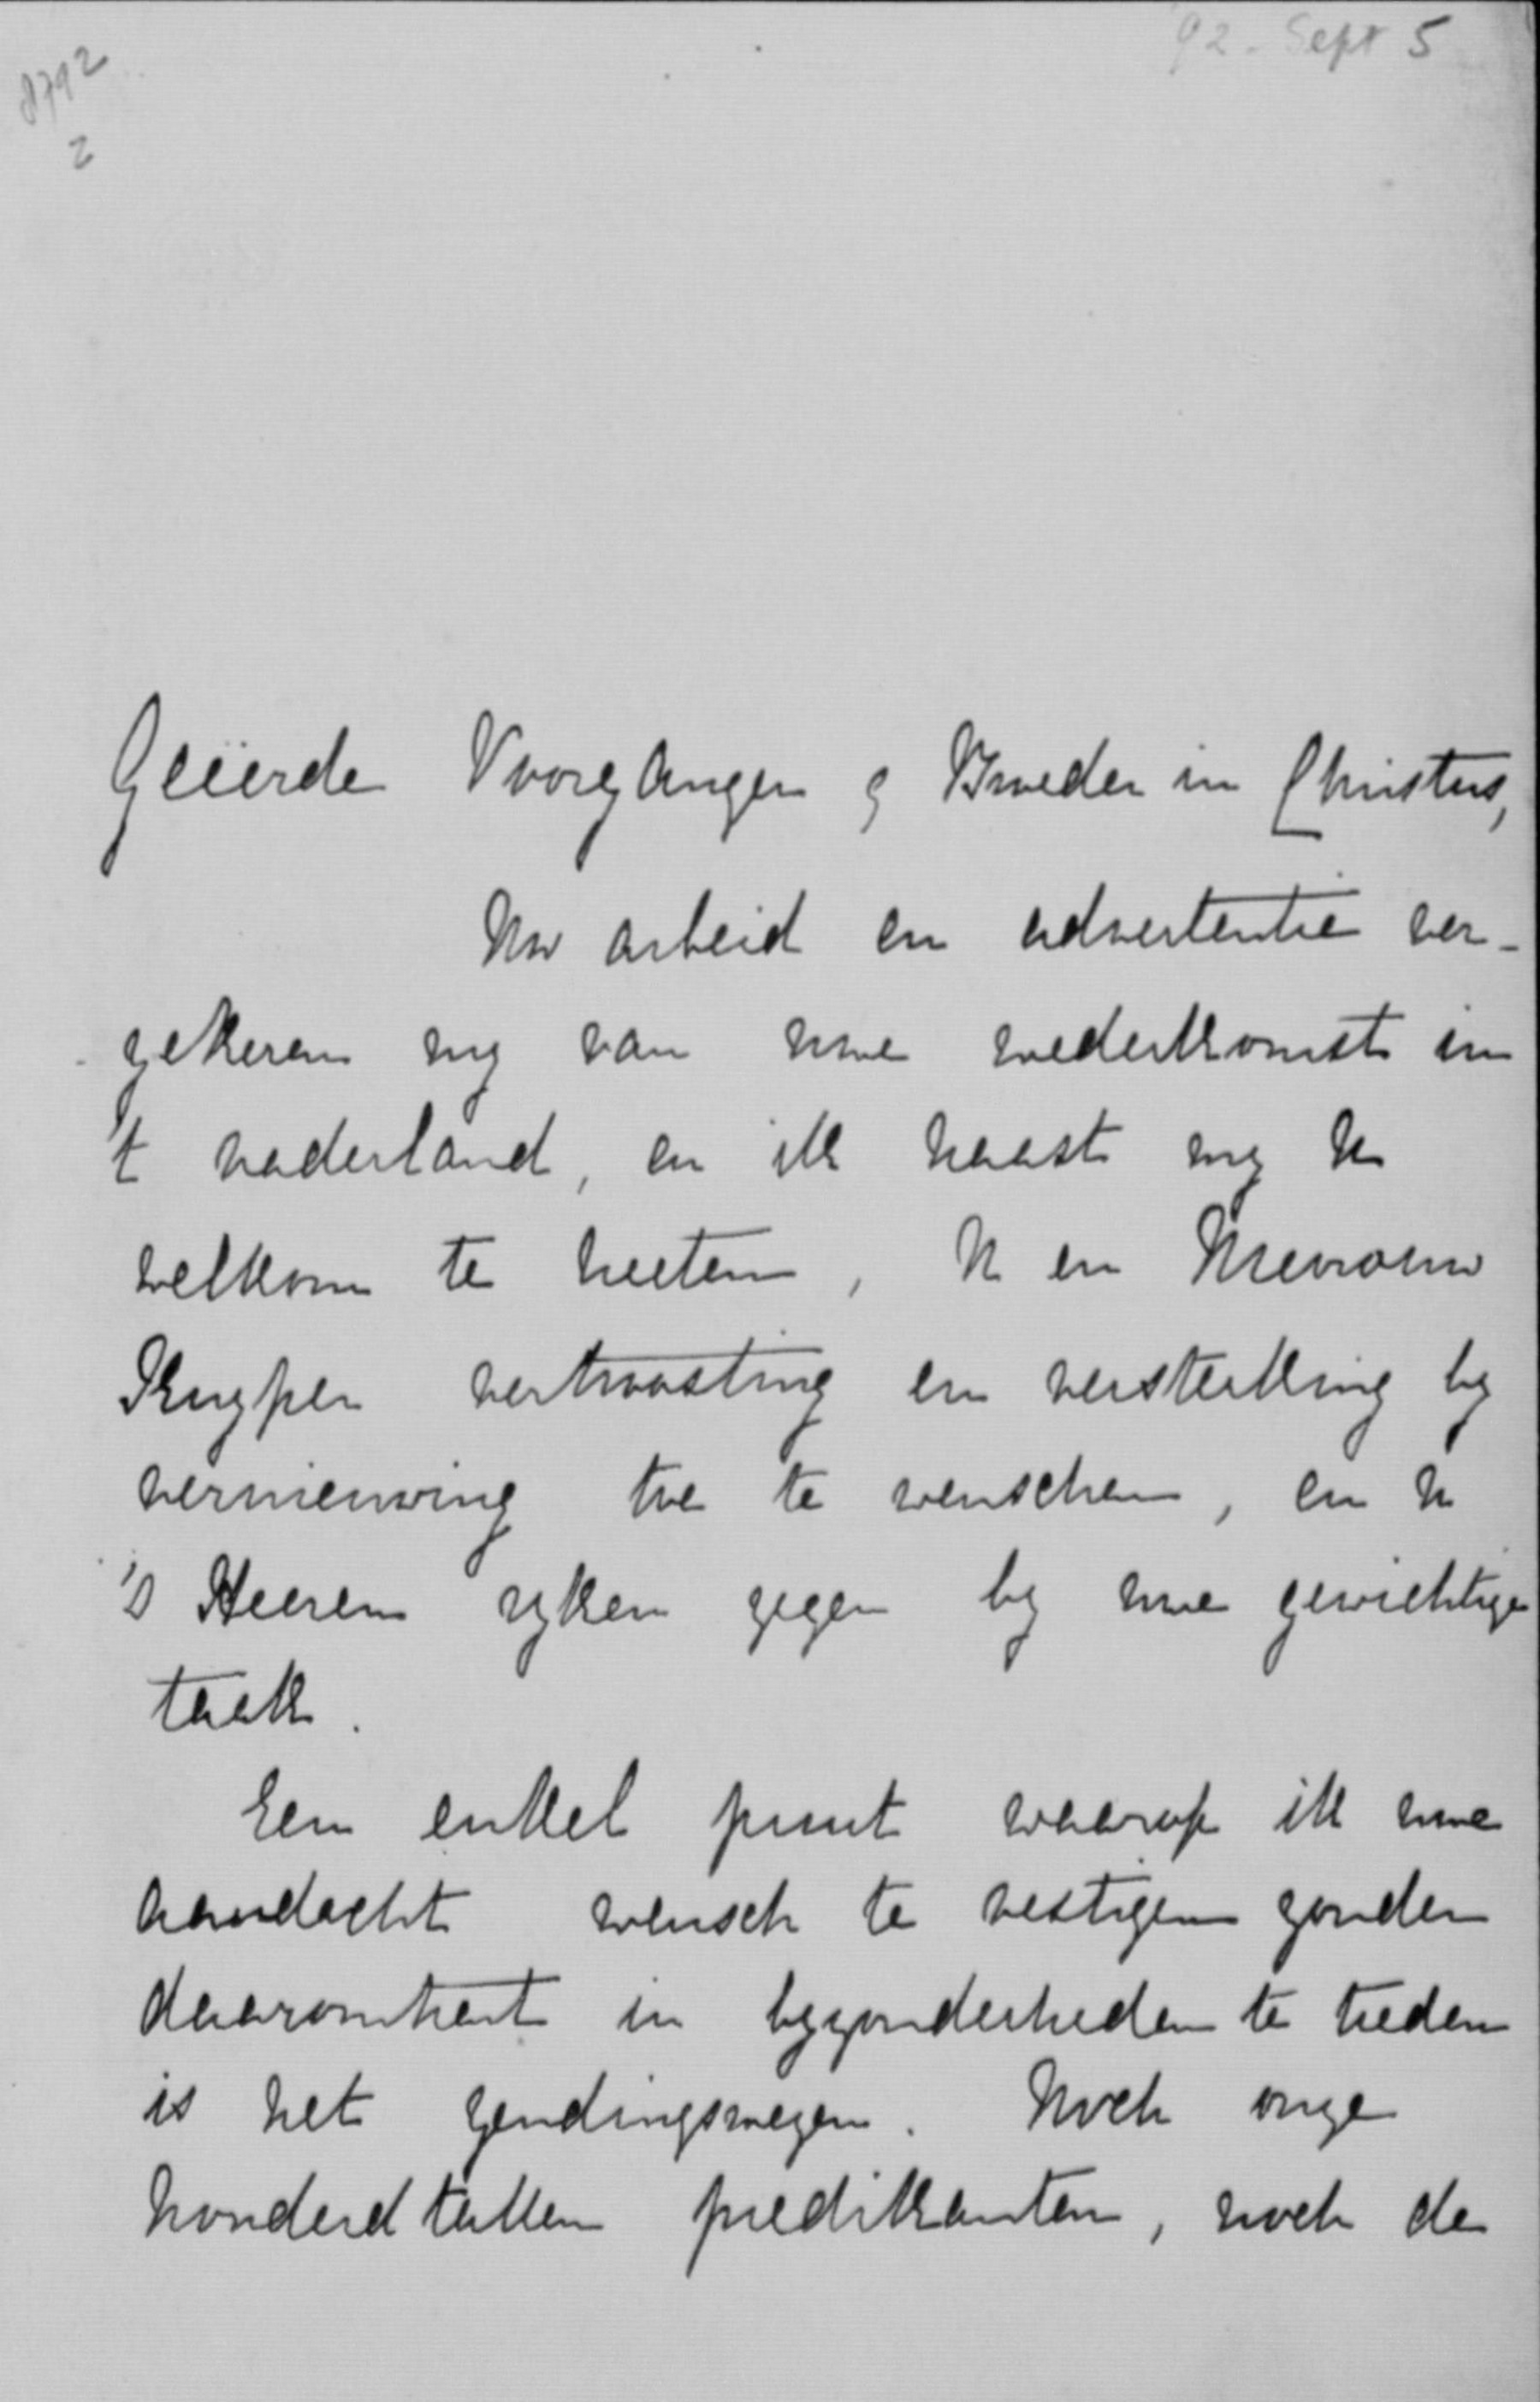 92 - Sept 5
8792
2
Geëerde Voorganger & Broeder in Christus,
Uw arbeid en advertentie ver-
zekeren my van uwe wederkomst in
't vaderland, en ik haast my U
welkom te heeten, U en Mevrouw
Kuyper vertroosting en versterking by
vernieuwing toe te wenschen, en U
's Heeren ryken zegen by uwe gewichtige
taak.
Een enkel punt waarop ik uwe
aandacht wensch te vestigen zonder
daaromtrent in byzonderheden te treden
is het zendingswezen. Noch onze
honderdtallen predikanten, noch de